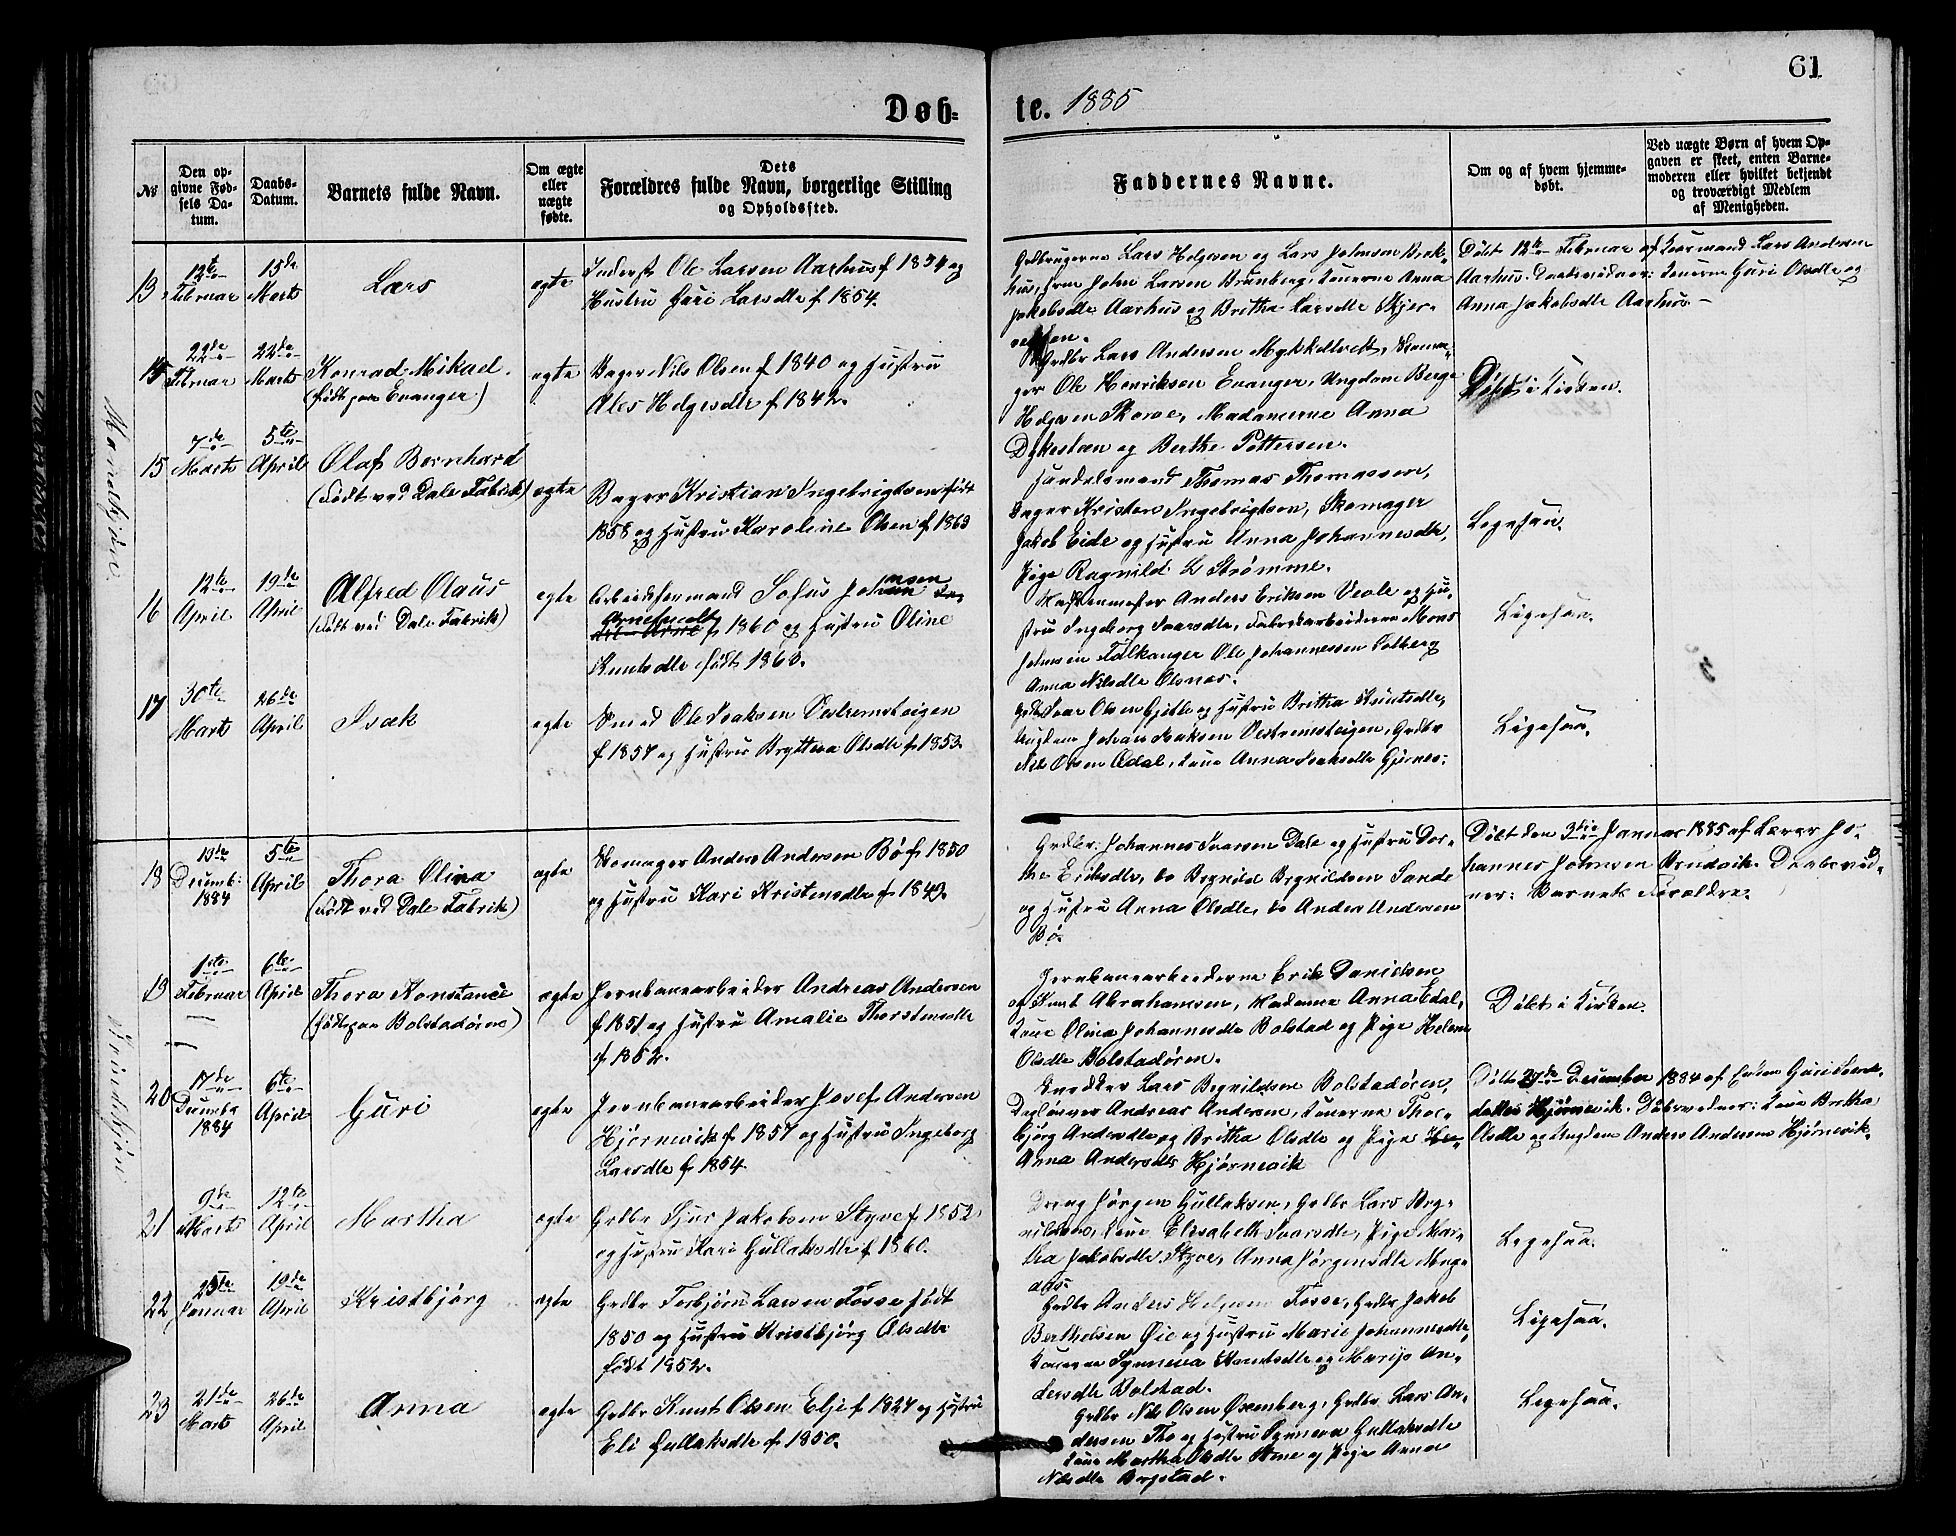 61
Døb=
te. 1885
№
Den op-
givne Fød-
sels Da-
tum.
Daabs-
Datum.
Barnets fulde Navn.
Om ægte
eller
uægte
fødte.
Dets
Forældres fulde Navn, borgerlige Stilling
og Opholdssted.
Faddernes Navne.
Om og af hvem hjemme-
døbt.
Ved uægte Børn af hvem Op-
gaven er skeet, enten Barne-
moderen eller hvilket bekjendt
og troværdigt Medlem
af Menigheden.
13
12te
Februar
15de
Marts
Lars
egte
Inderst Ole Larsen Aarhus f 1854 og
Hustru Guri Larsdtr f 1854.
Grdbrugerne Lars Helgesen og Lars Johnson Brek-
hus, John Larsen Brunborg, Konerne Anna
Jakobsdtr Aarhus og Britha Larsdtr Skjer-
Døbt 12te Februar af Kaarmand Lars Andersen
Aarhus. Daabsvidner: Konerne Guri Olsdtr og
Anna Jakobsdtr Aarhus.
14
22de
Februar
22de
Marts
Konrad Mikal.
(født paa Evanger)
egte
Bager Nils Olsen f 1840 og Hustru
Ales Helgesdtr f 1842.
Grdbr Lars Andersen Mykkeltveit, Skoma-
ger Ole Henriksen Evanger, Ungdom Berge
Helgesen Skorve, Madamerne Anna
Dykesteen og Berthe Pettersen.
Døbt i Kirken.
15
7de
Marts
5te
April
Olaf Bernhard
(født ved Dale Fabrik)
egte
Bager Kristian Ingebrigtsen født
1858 og Hustru Karoline Olsen f 1863
Handelsmand Thomas Thomassen,
Bager Kristen Ingebrigtsen, Skomager
Jakob Eide og Hustru Anna Johannesdtr,
Pige Ragnild L Strømme.
Ligesaa.
16
12te
April
19de
April
Alfred Olaus
(født ved Dale Fabrik)
egte
Arbeidsformand Sofus Johnsen
f 1860 og Hustru Oline
Knutsdtr født 1863.
Anders Eriksen Veole og Hu-
stru Ingeborg Ivarsdtr, Fabrikarbeiderne Mons
Johnsen Falkanger Ole Johannessen Solberg
Anna Nilsdtr Olsnes.
Ligesaa.
17
30te
Marts
26de
April
Isak
egte
Smed Ole Isaksen Vestremsteigen
f 1857 og Hustru Brytteva Olsdtr f 1853.
Grdbr Ivar Olsen Gjitle og Hustru Britha Knutsdtr,
Ungdom Johan Isaksen Vestremsteigen, Grdbr
Nils Olsen Ødal, Kone Anna Isaksdtr Gjernes.
Ligesaa.
18
13de
Decemb:
1884
5te
April
Thora Olina
(født ved Dale Fabrik)
egte
Skomager Anders Andersen Bø f 1850
og Hustru Kari Kristensdtr f 1849.
Grdbr: Johannes Ivarsen Dale og Hustru Dor-
the Eriksdtr, do Brynild Brynildsen Sande
og Hustru Anna Olsdtr, do Anders Andersen
Bø.
Døbt den 3die Januar 1885 af Lærer Jo-
hannes Johnsen Brudvik. Daabsvid-
ner: Barnets Forældre.
19
1ste
Februar
6te
April
Thora Konstance
(født paa Bolstadøren)
egte
Jernbanearbeider Andreas Andersen
f 1851 og Hustru Amalie Thorstensdtr
f 1852.
Jernbanearbeiderne Erik Danielsen
og Knut Abrahamsen, Madame Anna Edal,
Kone Olina Johannesdtr Bolstad og Pige Helene
Olsdtr Bolstadøren.
Døbt i Kirken.
20
17de
Decembr
1884
6te
April
Guri
egte
Jernbanearbeider Josef Andersen
Hjørnevik f 1857 og Hustru Ingeborg
Larsdtr f 1854.
Snedker Lars Brynildsen Bolstadøren,
Daglønner Andreas Andersen, Konerne Thor-
bjørg Andersdtr og Britha Olsdtr og Pige
Anna Andersdtr Hjørnevik
Døbt 27de December 1884 af Guri
Hjørnevik. Daabsvidner: Kone Britha
Olsdtr og Ungdom Anders Andersen Hjørnevik.
21
9de
Marts
12te
April
Martha
egte
Grdbr Sjur Jakobsen Styve f 1852
og Hustru Kari Gullaksdtr f 1860.
Dreng Jørgen Gullaksen, Grdbr Lars Bry-
nildsen, Kone Elisabeth Ivarsdtr, Pige Mar-
tha Jakobsdtr Styve, Anna Jørgensdtr
Ligesaa.
22
25de
Januar
19de
April
Kristbjørg
egte
Grdbr Torbjørn Larsen Fosse født
1850 og Hustru Kristbjørg Olsdtr
født 1852.
Grdbr Anders Helgesen Fosse, Grdbr Jakob
Berthelsen Øie og Hustru Marie Johannesdtr,
Konerne Synneva Knutsdtr og Marije An-
dersdtr Bolstad.
Ligesaa.
23
21de
Marts
26de
April
Anna
egte
Grdbr Knut Olsen Elje f 1827 og Hustru
Eli Gullaksdtr f 1850.
Grdbr Nils Olsen Øxenberg, Grdbr Lars An-
dersen Tho og Hustru Synneva Gullaksdtr
Kone Martha Olsdtr og Pige Anna
Nilsdtr Bergstad.
Ligesaa.